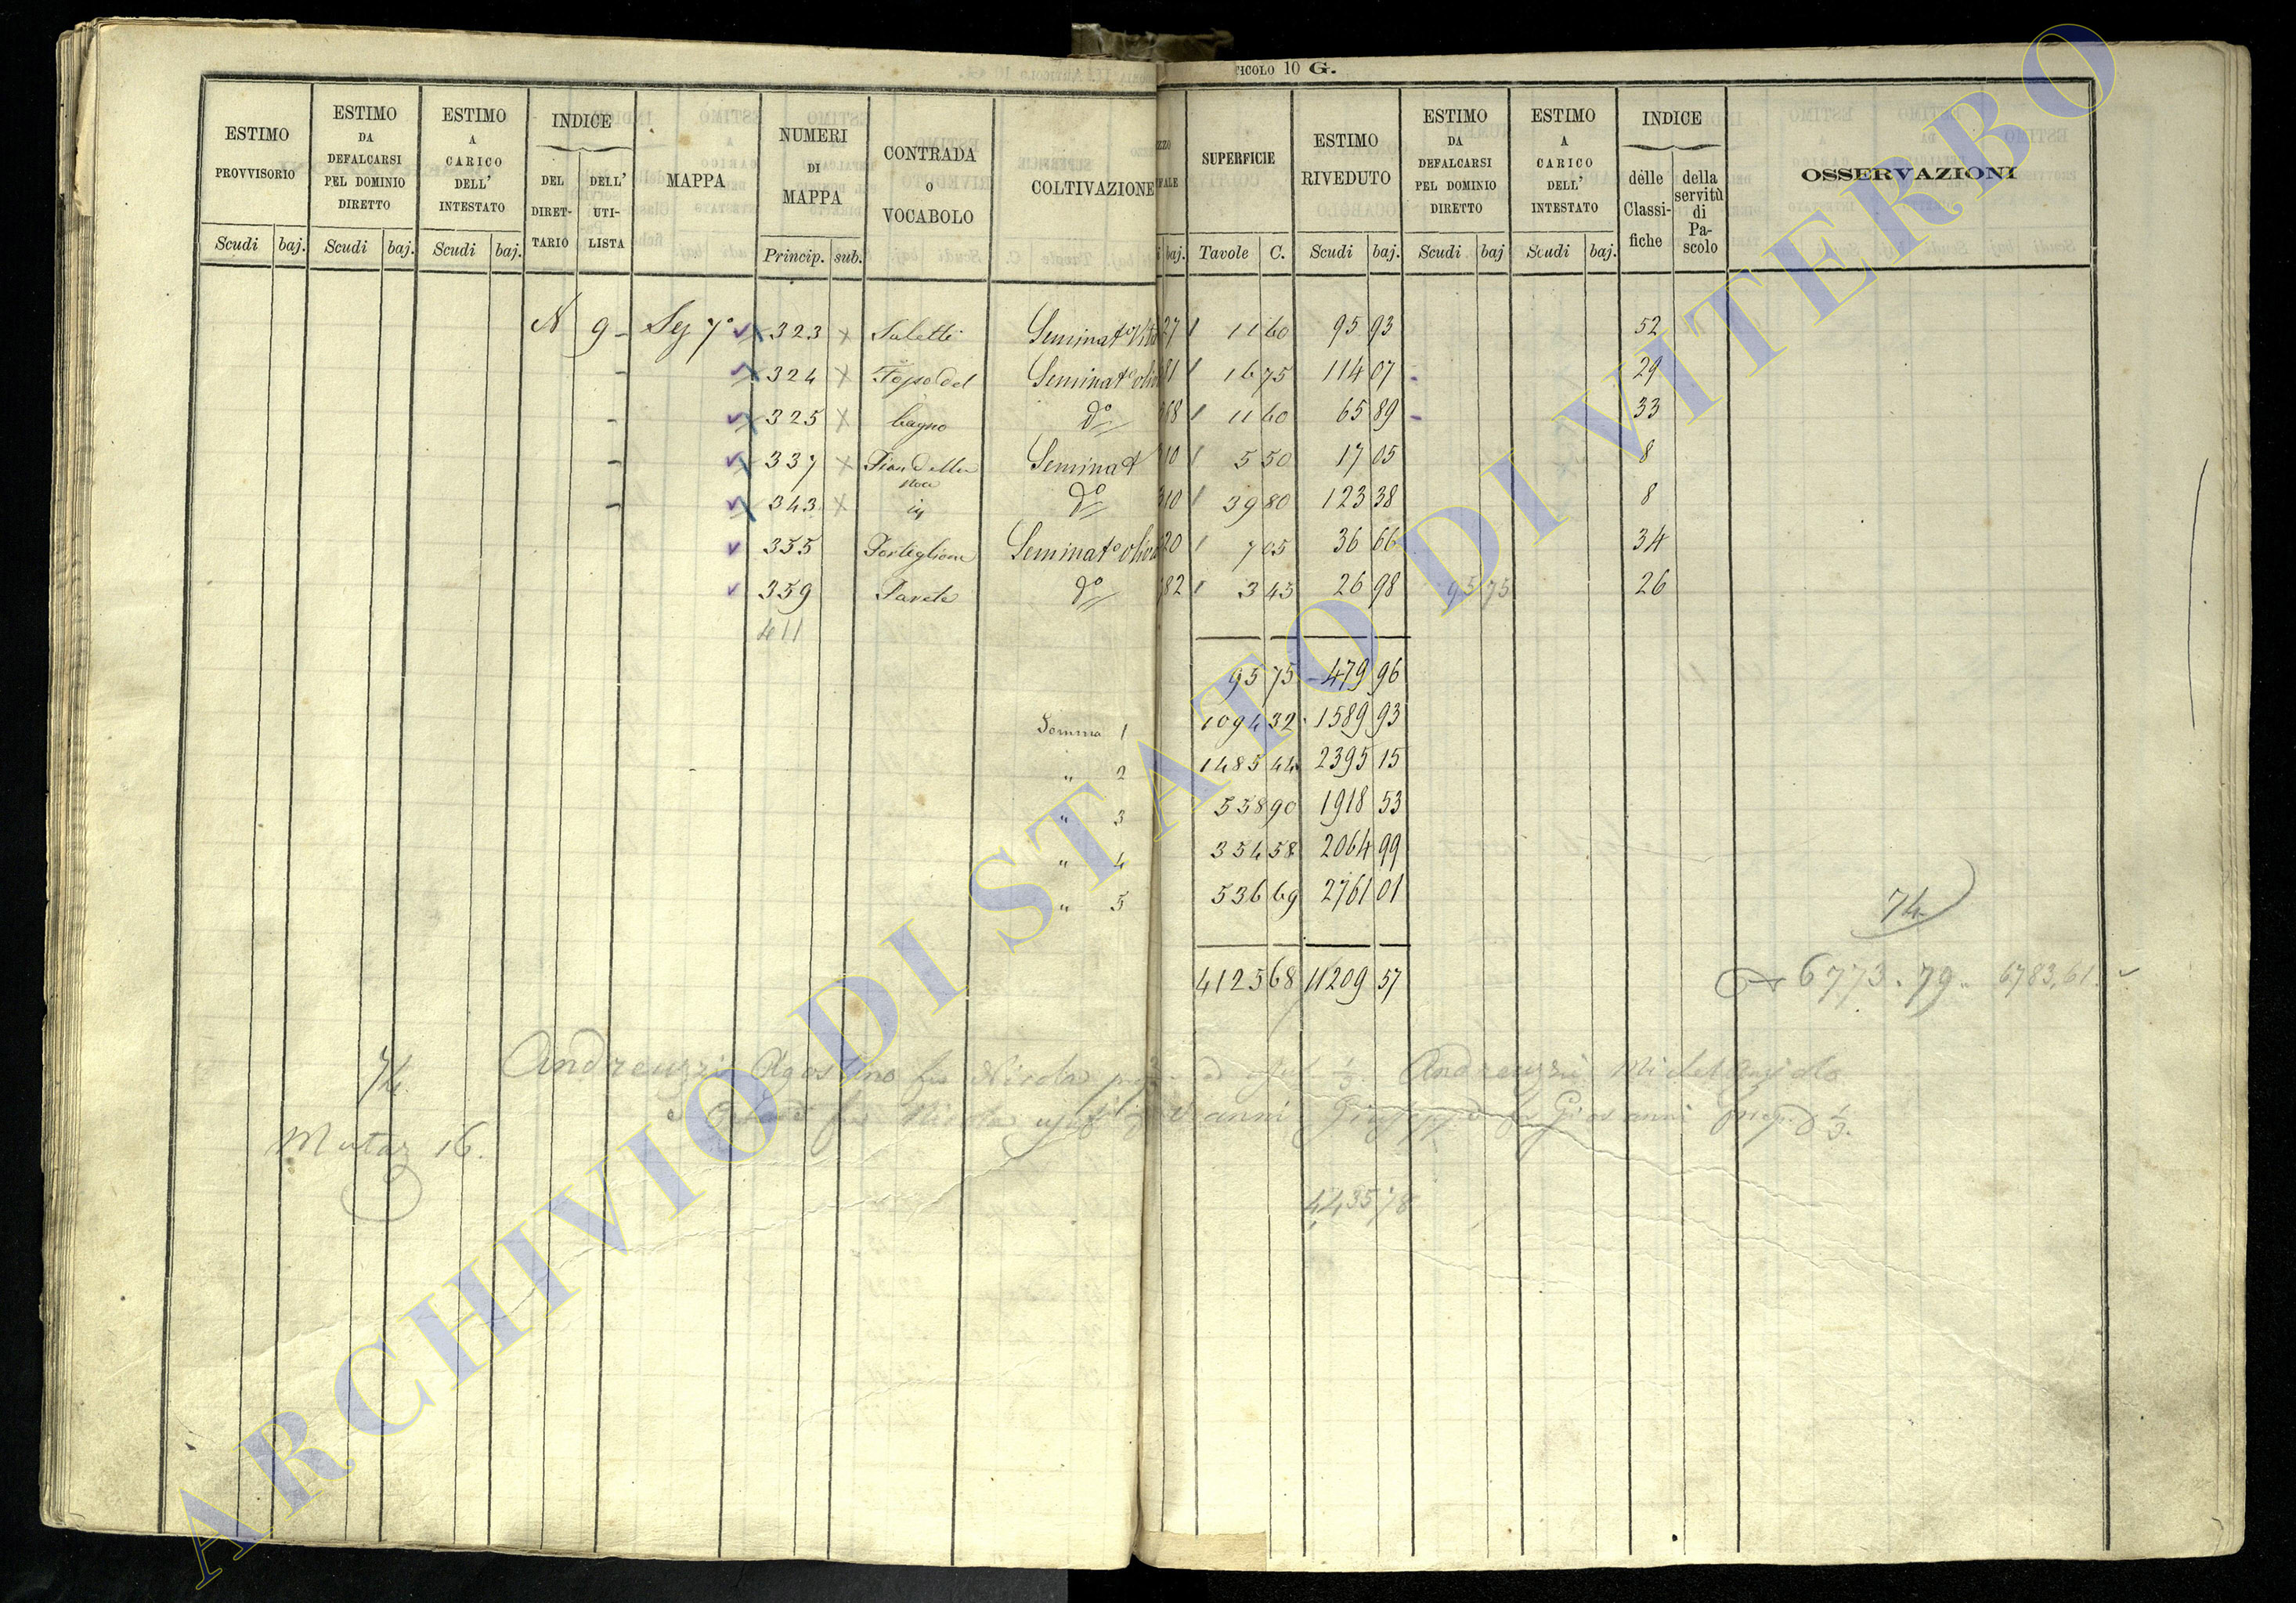 TICOLO 10 G.
ESTIMO PROVVISORIO | ESTIMO DA DEFALCARSI PEL DOMINIO DIRETTO | ESTIMO A CARICO DELL' INTESTATO | INDICE DEL DIRETTARIO | DELL' UTILISTA | MAPPA | NUMERI DI MAPPA | CONTRADA O VOCABOLO | COLTIVAZIONE | SUPERFICIE | ESTIMO RIVEDUTO | ESTIMO DA DEFALCARSI PEL DOMINIO DIRETTO | ESTIMO A CARICO DELL' INTESTATO | INDICE delle Classifiche | della servitù di Pascolo | OSSERVAZIONI
Scudi baj. Scudi baj. Scudi baj. Princip. sub. baj. Tavole C. Scudi baj. Scudi baj Scudi baj.
N 9 Sez 7ª 323 Saletti Seminatº 27 11 60 95 93 52
324 81 16 75 114 07 29
Seminatº oliv
325 bagno dº 68 11 60 65 89 33
337 Pian della noce Seminat 10 5 50 17 05 8
343 dº 310 39 80 123 38 8
355 Seminatº olivat 20 7 05 36 66 34
359 dº 82 3 45 26 98 95 75 26
411
95 75 479 96
Somma 1 1094 32 1589 93
" 2 1485 44 2395 15
" 3 558 90 1918 53
" 4 354 58 2064 99
" 5 536 69 2761 01
74
4125 68 11209 57
6773.79 6783,61
74. Andreuzzi Agostino fu Nicola Andreuzzi
fu Nicola Giuseppe fu Giovanni
Mutaz 16.
4435 78
ARCHIVIO DI STATO DI VITERBO